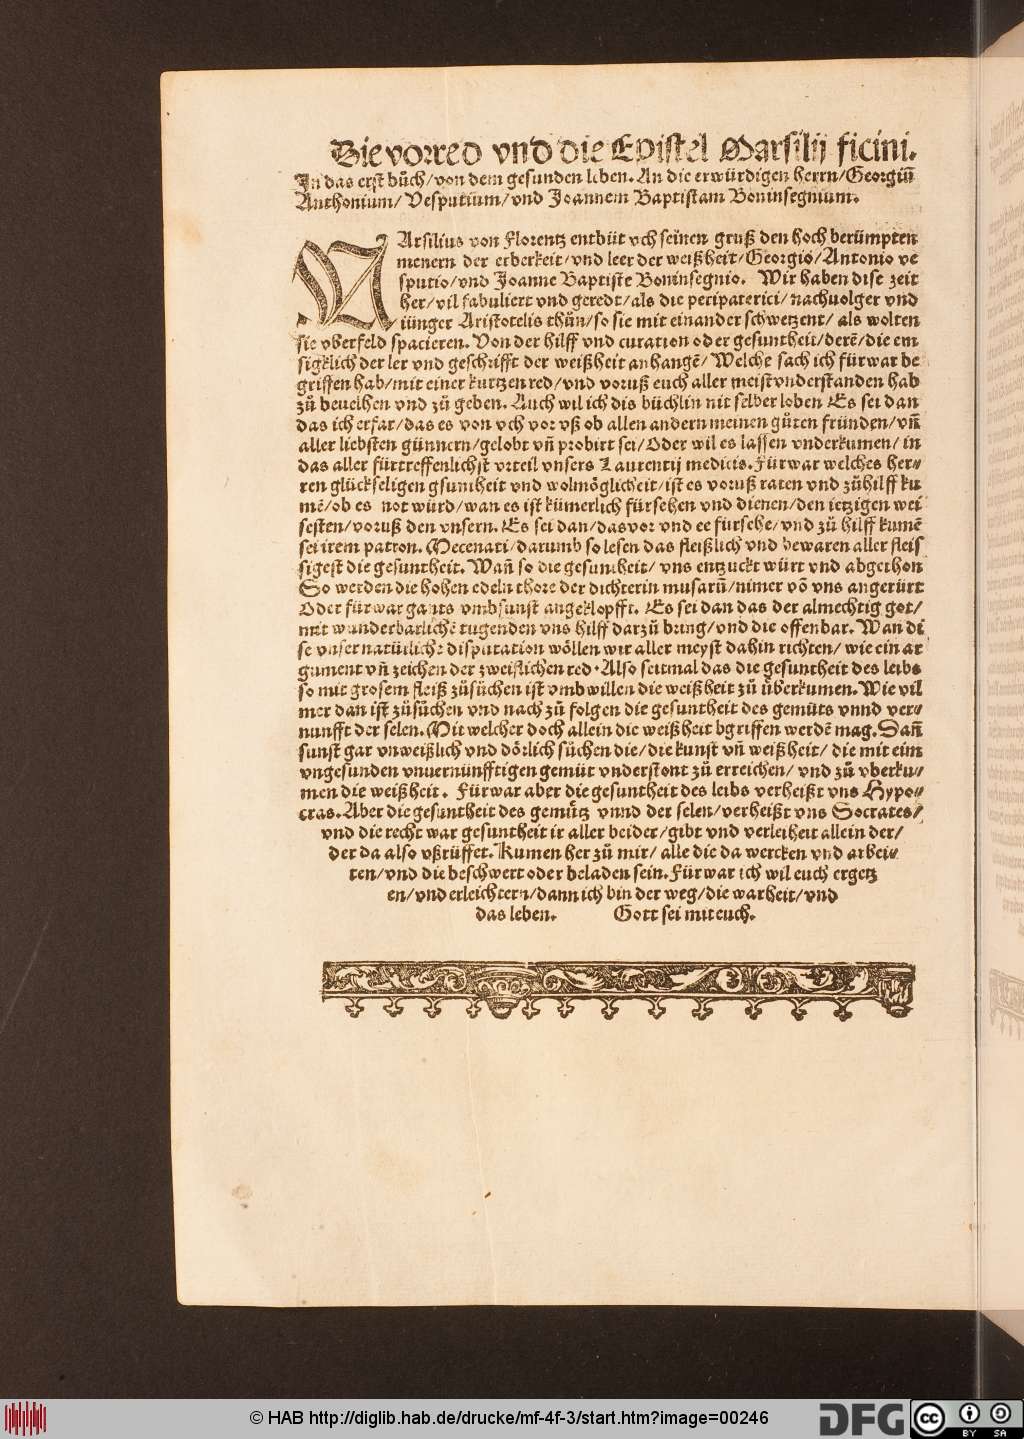 Die vorred vnd die Epistel Marsilij ficini.
In das erst bůch/von dem gesunden leben. An die erwürdigen herrn/Georgiū
Anthonium/Vesputium/vnd Joannem Baptistam Boninsegnium.
MArsilius von Florentz entbüt vch seinen gruß den hoch berümpten
menern der erberkeit/vnd leer der weißheit/Georgio/Antonio ve
sputio/vnd Joanne Baptiste Boninsegnio. Wir haben dise zeit
her/vil fabuliert vnd geredt/als die peripaterici/nachuolger vnd
iünger Aristotelis thůn/so sie mit einander schwetzent/als wolten
sie vberfeld spacieren. Von der hilff vnd curation oder gesuntheit/derē/die em
sigklich der ler vnd geschrifft der weißheit anhangē/Welche sach ich fürwar be
griffen hab/mit einer kurtzen red/vnd voruß euch aller meist vnderstanden hab
zů beuelhen vnd zů geben. Auch wil ich dis büchlin nit selber loben Es sei dan
das ich erfar/das es von vch vor vß ob allen andern meinen gůten fründen/vn̄
aller liebsten günnern/gelobt vn̄ probirt sei/Oder wil es lassen vnderkumen/in
das aller fürtreffenlichst vrteil vnsers Laurentij medicis. Fürwar welches her-
ren glückseligen gsuntheit vnd wolmöglicheit/ist es voruß raten vnd zůhilff ku
mē/ob es not würd/wan es ist kümerlich fürsehen vnd dienen/den ietzigen wei
sesten/voruß den vnsern. Es sei dan/das vor vnd ee fürsehe/vnd zů hilff kumē
sei irem patron. Mecenati/darumb so lesen das fleißlich vnd bewaren aller fleis
sigest die gesuntheit. Wan̄ so die gesuntheit/vns entzuckt würt vnd abgethon
So werden die hohen edeln thore der dichterin musarū/nimer vō vns angerürt
Oder fürwar gants vmbsunst angeklopfft. Es sei dan das der almechtig got/
mit wunderbarlichē tugenden vns hilff darzů bring/vnd die offenbar. Wan di
se vnser natürliche disputation wöllen wir aller meyst dahin richten/wie ein ar
gument vn̄ zeichen der zweiflichen red. Also seitmal das die gesuntheit des leibs
so mit grosem fleiß zůsůchen ist vmb willen die weißheit zů überkumen. Wie vil
mer dan ist zůsůchen vnd nach zů folgen die gesuntheit des gemüts vnnd ver-
nunfft der selen. Mit welcher doch allein die weißheit bgriffen werdē mag. Dan̄
sunst gar vnweißlich vnd dörlich sůchen die/die kunst vn̄ weißheit/die mit eim
vngesunden vnuernünfftigen gemüt vnderstont zů erreichen/vnd zů vberku/
men die weißheit. Fürwar aber die gesuntheit des leibs verheißt vns Hypo-
cras. Aber die gesuntheit des gemütz vnnd der selen/verheißt vns Socrates/
vnd die recht war gesuntheit ir aller beider/gibt vnd verleiheit allein der/
der da also vßrüffet. Kumen her zů mir/alle die da wercken vnd arbei-
ten/vnd die beschwert oder beladen sein. Fürwar ich wil euch ergetz
en/vnd erleichtern/dann ich bin der weg/die warheit/vnd
das leben. Gott sei mit euch.
© HAB http://diglib.hab.de/drucke/mf-4f-3/start.htm?image=00246
DFG
cc BY SA